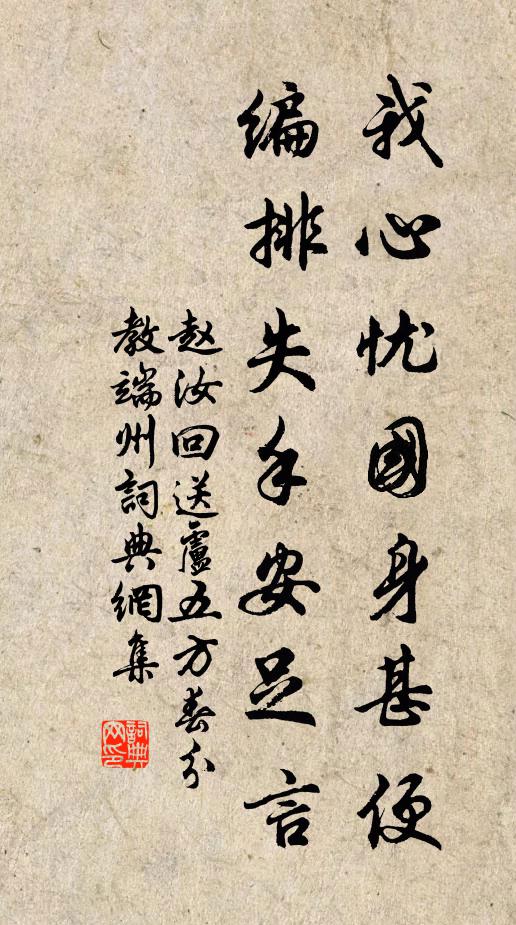 我心忧國身甚便
编排失手安足言
赵汝回送盧五方春分
教端州詞典網集
詞典网印